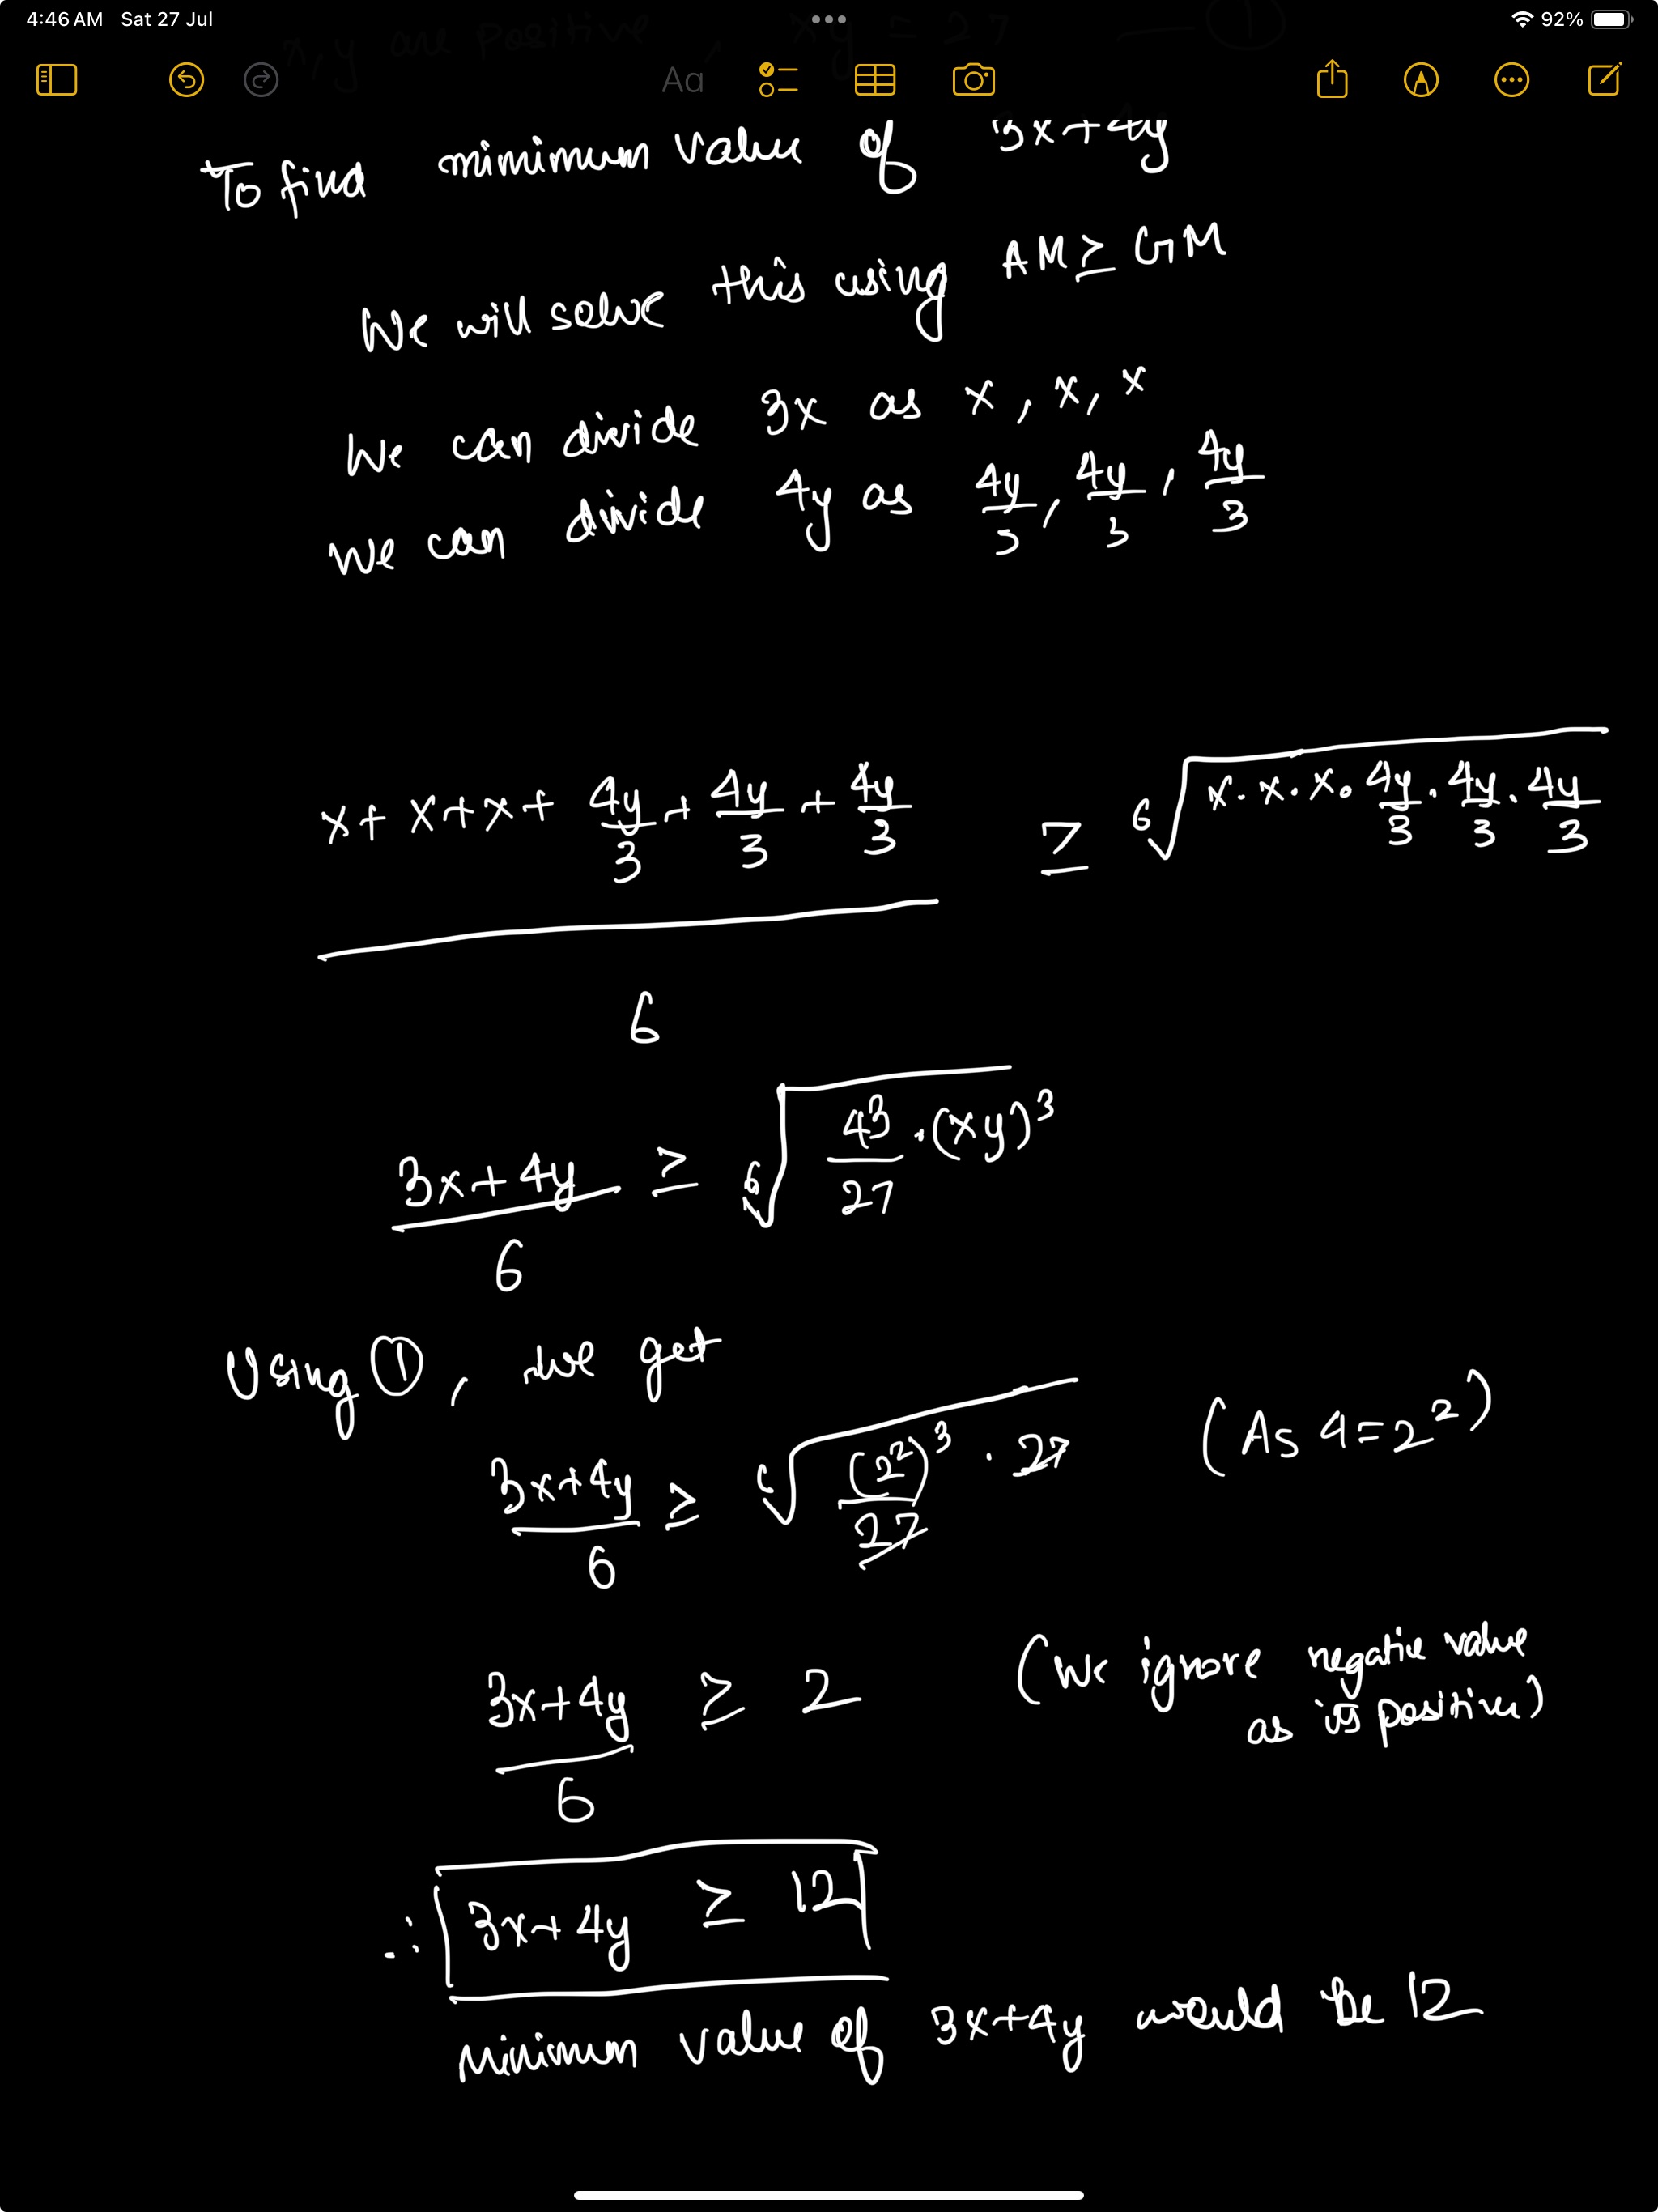 4:46 AM Sat 27 Jul
92%
x, y are positive, xy = 27 — ①
Aa
To find mimimum value of 3x+4y
We will solve this using AM ≥ GM
We can divide 3x as x, x, x
We can divide 4y as 4y/3, 4y/3, 4y/3
(x + x + x + 4y/3 + 4y/3 + 4y/3)/6 ≥ ⁶√(x·x·x·4y/3·4y/3·4y/3)
(3x+4y)/6 ≥ ⁶√(4³/27·(xy)³)
Using ①, we get
(3x+4y)/6 ≥ ⁶√((2²)³/27 · 27) (As 4=2²)
(3x+4y)/6 ≥ 2 (We ignore negative value
as is positive)
∴ 3x+4y ≥ 12
Minimum value of 3x+4y would be 12